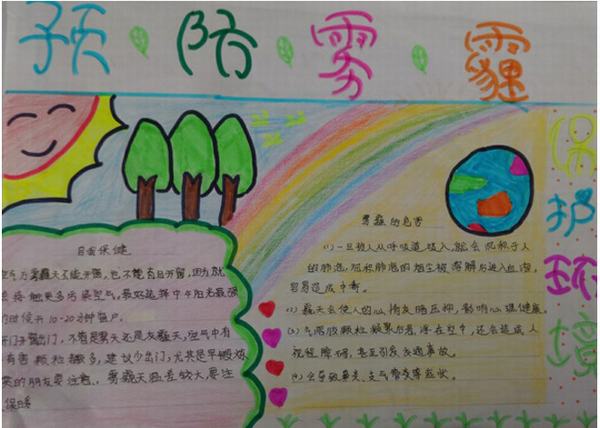 预防雾霾
保护环境
自我保健
雾霾天不能开窗,也不能盲目开窗,因为就
接触更多污染空气,最好选择中午阳光最强
的时候开10-20分钟窗户。
开门不出门,不管是雾天还是灰霾天,空气中有
有害颗粒都多,建议少出门,尤其是早锻炼
的朋友要注意。雾霾天温差较大,要注
保暖
雾霾的危害
(1)一旦被人从呼吸道吸入,就会沉积于人
的肺泡,沉积肺泡的烟尘被溶解后进入血液,
容易造成中毒。
霾天会使人的心情灰暗压抑,影响心理健康。
颗粒
浮在空中,还会造成人
视程障碍,甚至引发交通事故。
会导致鼻炎、支气管炎等症状。